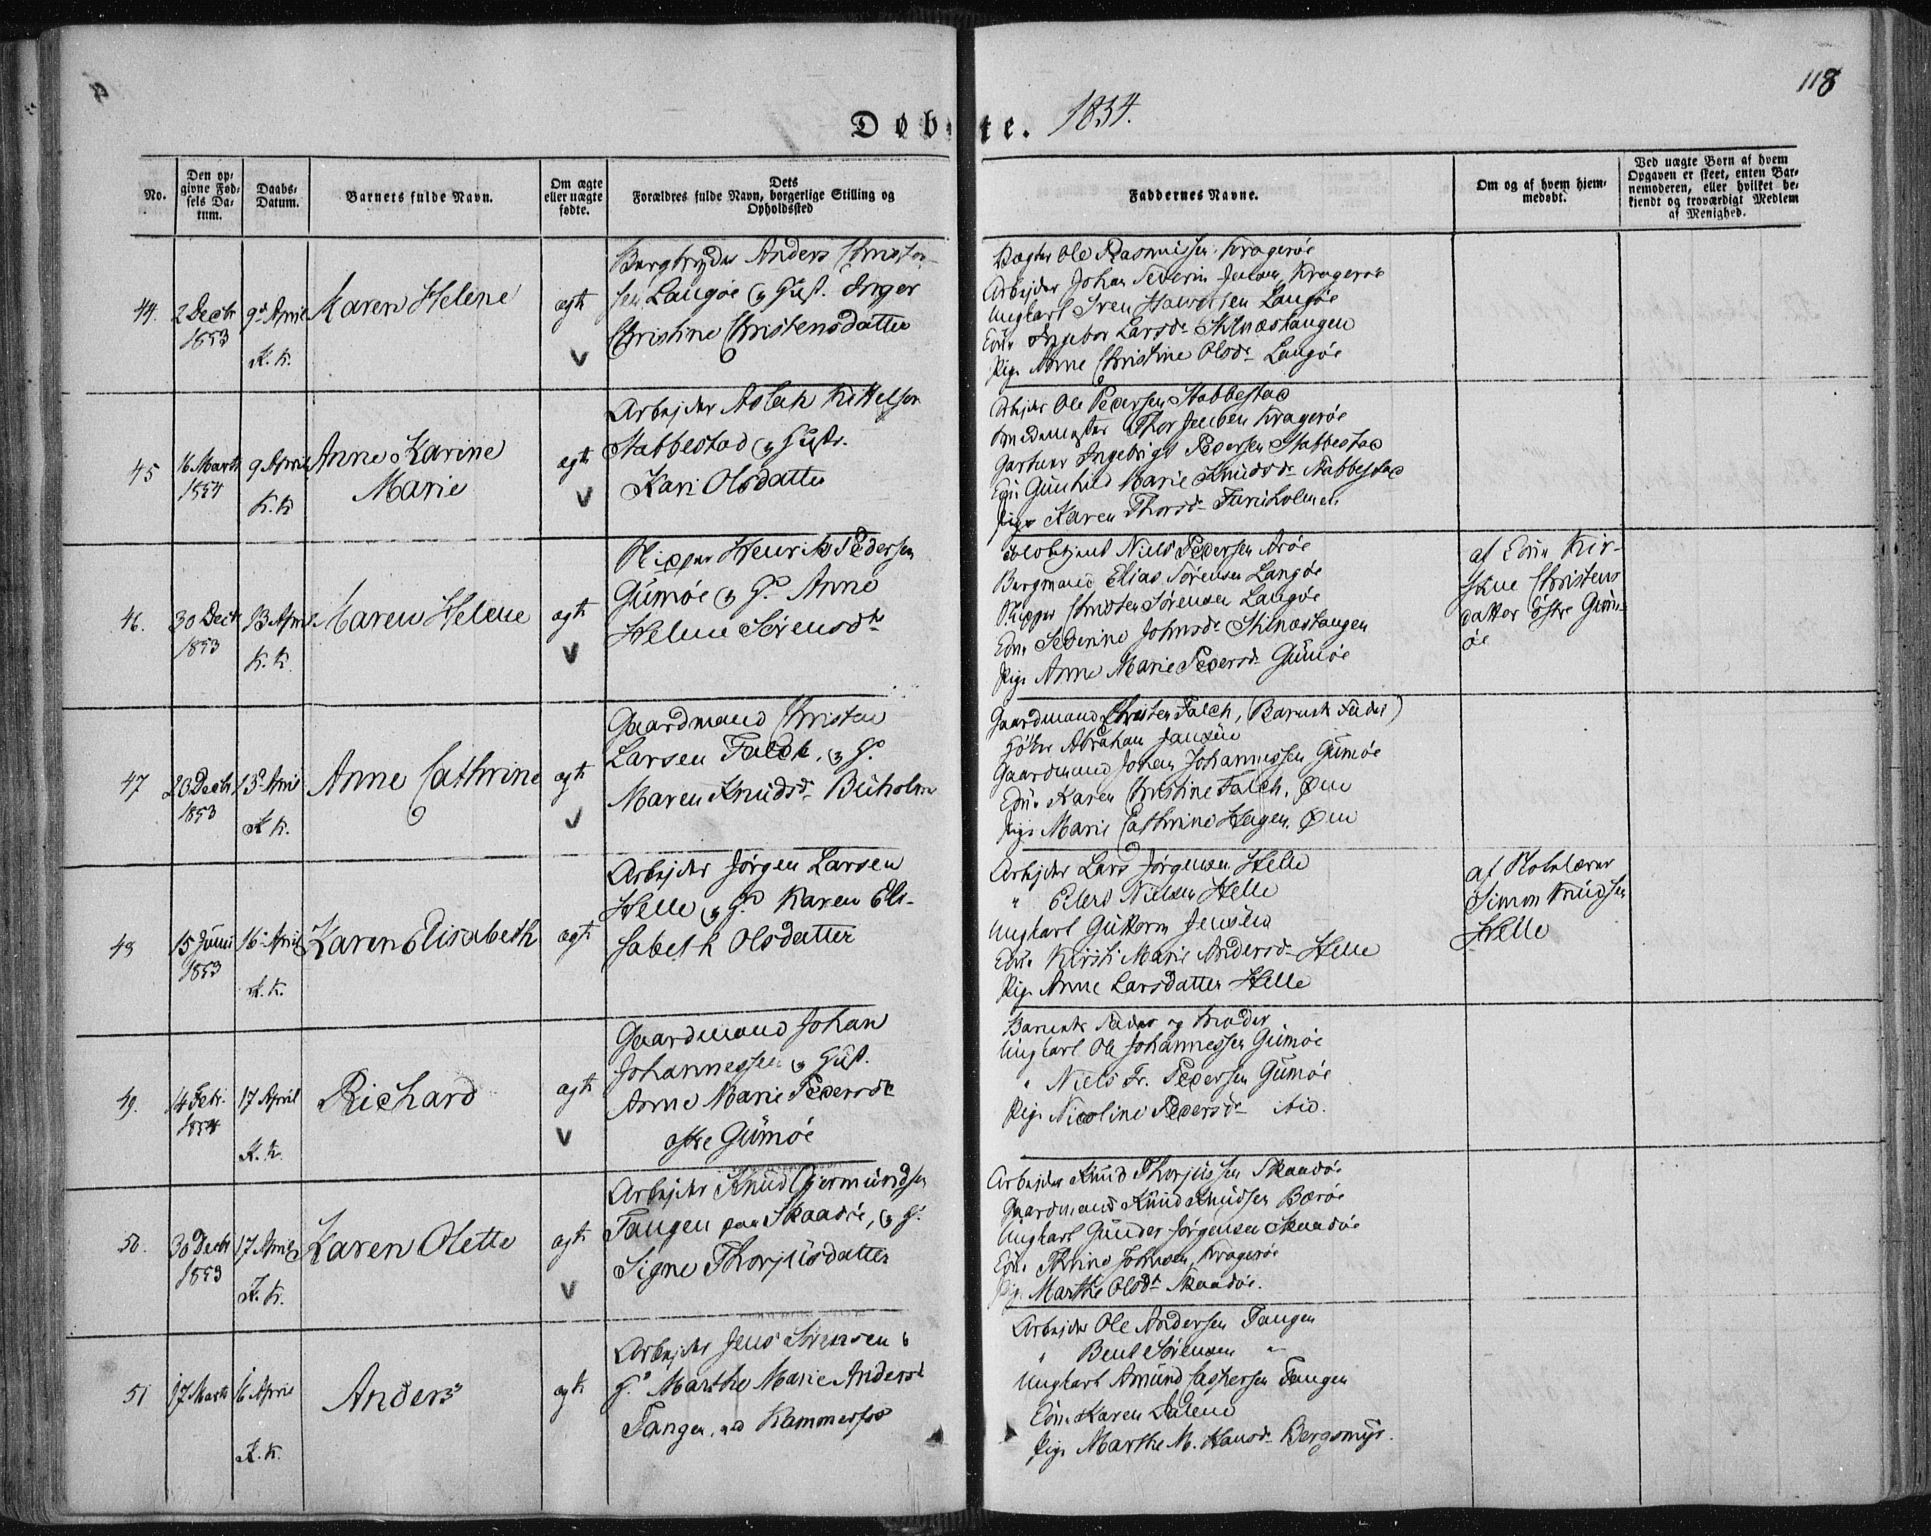 118
Døbte. 1854.
No.
Den opgivne Fødsels Datum.
Daabs-Datum.
Barnets fulde Navn.
Om ægte eller uægte fødte.
Dets Forældres fulde Navn, borgerlige Stilling og Opholdssted
Faddernes Navne.
Om og af hvem hjemmedøbt.
Ved uægte Børn af hvem Opgaven er skeet, enten Barnemoderen, eller hvilket bekiendt og troværdigt Medlem af Menighed.
44.
2 Decbr
1853
9de April
K. K.
Maren Helene
ægte
Anders Christen-
sen Langøe og Hust. Inger
Christine Christensdatter
Ole Rasmussen Kragerøe
Arbejder Johan Severin Julsen Kragerøe
Ungkarl Sven Halvorsen Langøe
Kone Ingebor Larsd. Stilnæstangen
Pige Anne Christine Olsd. Langøe
45
16 Marts
1854
9 April
K. K
Anne Karine
Marie
ægte
Arbejder Aslak Kittelsen
Stabbestad og Hustr.
Kari Olsdatter
Arbejder Ole Pedersen Stabbestad
Thor Jensen Kragerøe
Gartner Ingebrigt Pedersen Stabbestad
Kone Gunhild Marie Knudsd. Stabbestad
Pige Karen Thorsd. Furuholmen
46.
30 Decbr
1853
13 April
K. K.
Maren Helene
ægte
Skipper Henrik Pedersen
Gumøe og H. Anne
Helene Sørensdr
Niels Pedersen Arøe
Bergmand Elias Sørensen Langøe
Skipper Christen Sørensen Langøe
Kone Severine Johnsd. Stilnæstangen
Pige Anne Marie Pedersd. Gumøe
af Kone Kir-
stine Christens
datter østre Gum-
øe
47
20 Decbr
1853
13de April
K. K.
Anne Cathrine
ægte
Gaardmand Christen
Larsen Falch, og H.
Maren Knudsd. Buholm
Gaardmand Christen Falch, (Barnets Fader)
Abraham Jansen
Gaardmand Johan Johannessen Gumøe
Kone Karen Christine Falch, Øen
Pige Marie Cathrine Hagen, Øen
48
15 Juni
1853
16 April
K. K.
Karen Elisabeth
ægte
Arbejder Jørgen Larsen
Helle og H. Karen Eli-
sabeth Olsdatter
Arbejder Lars Jørgensen Helle
" Eilert Nielsen Helle
Ungkarl Guttorm Jensen
Kone Kirsti Marie Andersd. Helle
Pige Anne Larsdatter Helle
af Skolelærer
Simon Knudsen
Helle
49.
14 Febr.
1854
17 April
K. K.
Richard
ægte
Gaardmand Johan
Johannessen og Hust.
Anne Marie Pedersdr
østre Gumøe
Barnets Fader og Moder
Ungkarl Ole Johannessen Gumøe
" Niels Fr. Pedersen Gumøe
Pige Nicoline Pedersdr ibid.
50.
30 Decbr
1853
17 April
K. K.
Karen Olette
ægte
Arbejder Knud Gjermundsen
Tangen paa Skaadøe, og H.
Signe Thorjusdatter
Arbejder Knud Thorjussen Skaadøe
Gaardmand Knud Knudsen Bærøe
Ungkarl Gunder Jørgensen Skaadøe
Kone Thrine Johnsen, Kragerøe
Pige Marthe Olsdr Skaadøe.
51
17 Marts
16 April
K. K.
Anders
ægte
Arbejder Jens Sørensen &
H. Marthe Marie Andersd
Tangen ved Kammerfos
Arbejder Ole Andersen Tangen
" Bent Sørensen "
Ungkarl Amund Caspersen Tangen
Kone Karen Dalene
Pige Marthe M. Hansd. Bergsmyr.